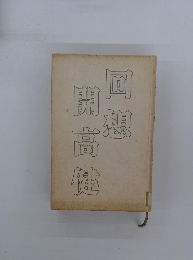 回
開高健